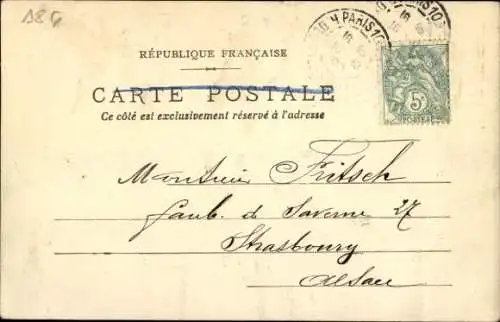 RÉPUBLIQUE FRANÇAISE
CARTE POSTALE
Ce côté est exclusivement réservé à l'adresse
PARIS 10
5c
POSTES
Monsieur Fritsch
faub. d Saverne 27
Strasbourg
Alsace